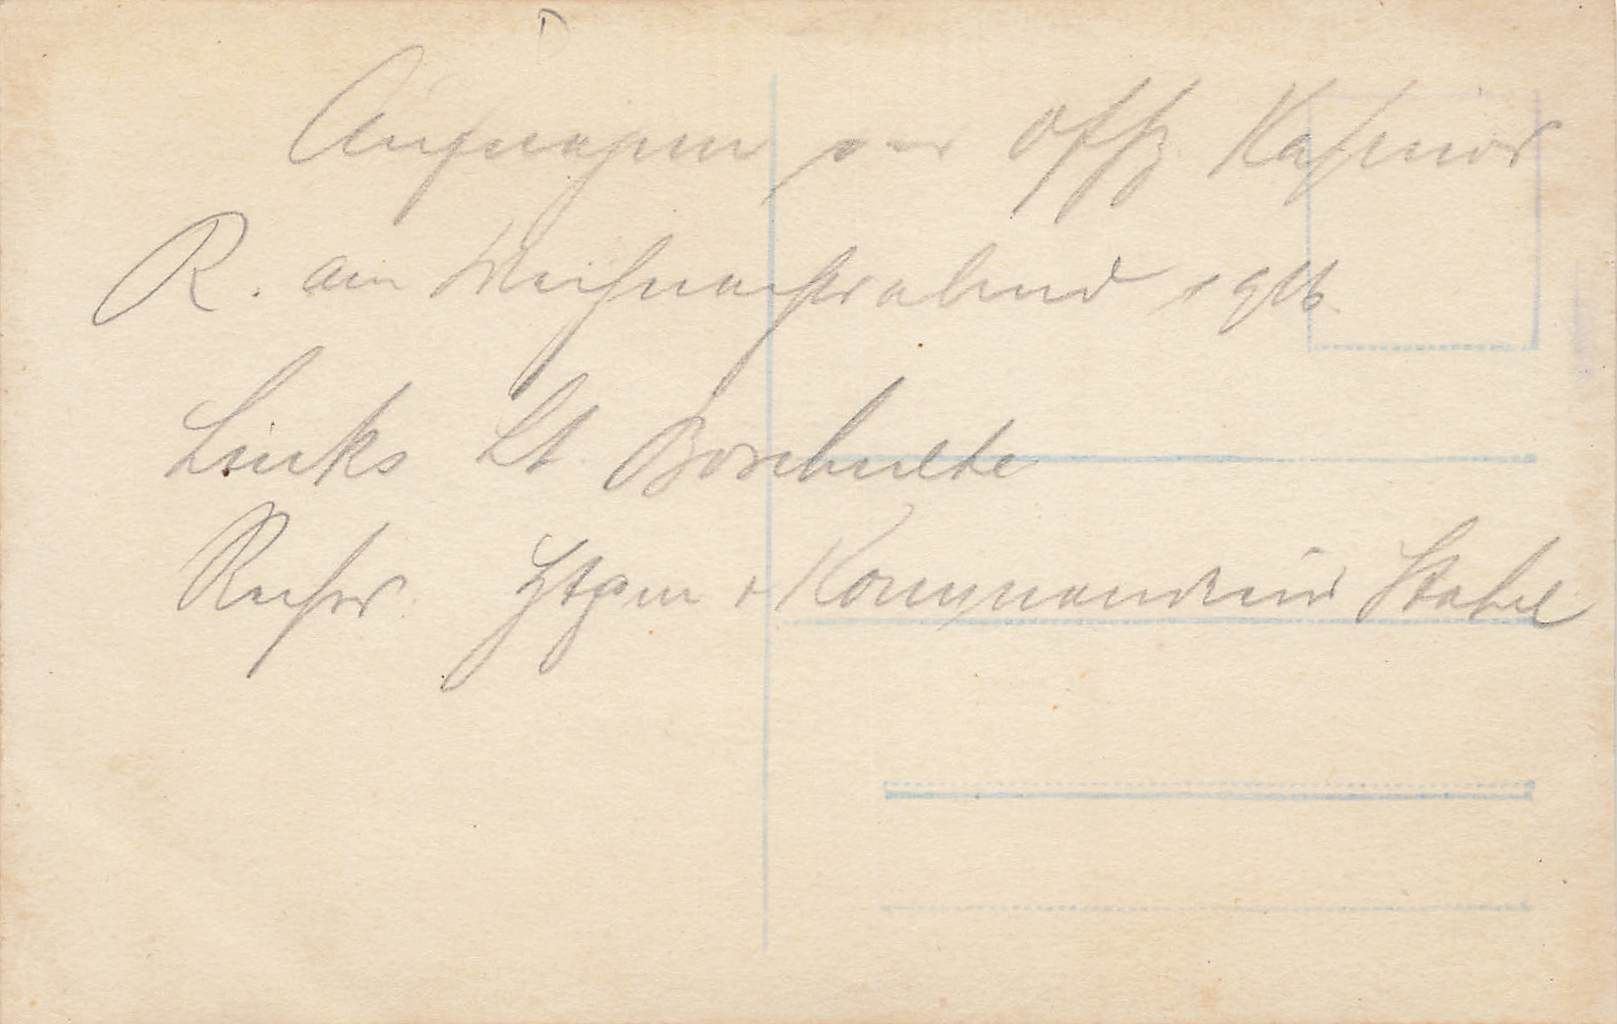 Aufnahmen vor Offz. Kasinos
R. am Weihnachtsabend 1916.
Links Lt. Borchulte
Rechts Hptm + Kommandeur Stabel